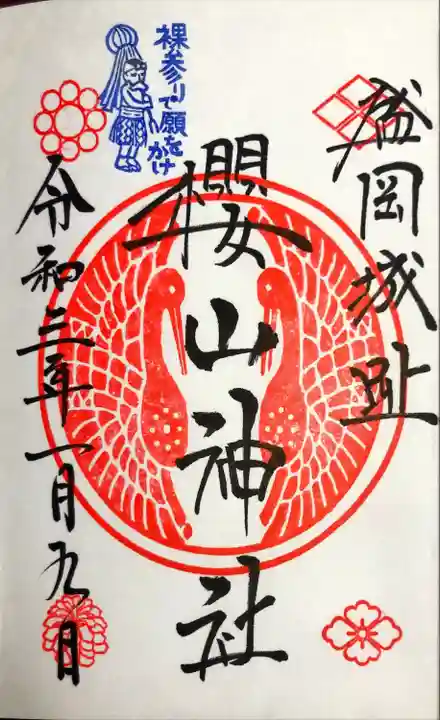 盛岡城址
櫻山神社
令和三年一月九日
裸参りで願を
かけ